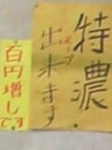 特濃
スープ
出来ます
百円増しです